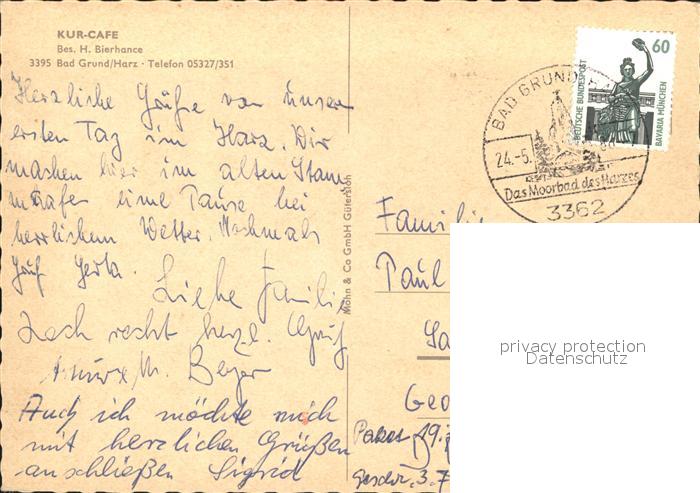 KUR-CAFE
Bes. H. Bierhance
3395 Bad Grund/Harz · Telefon 05327/351
Herzliche Grüße von unserem
ersten Tag im Harz. Wir
machen hier im alten Stamm
eine Pause bei
herrlichem Wetter. Nochmals
Gruß Gerta.
Liebe Familie
recht herzl. Gruß
M. Beyer
Auch ich möchte mich
mit herzlichen Grüßen
anschließen Sigrid
Mohn & Co GmbH Gütersloh
BAD GRUND
24.-5.
Das Moorbad des Harzes
3362
60
DEUTSCHE BUNDESPOST
BAVARIA MÜNCHEN
Familie
Paul
Sa
Geo
privacy protection
Datenschutz